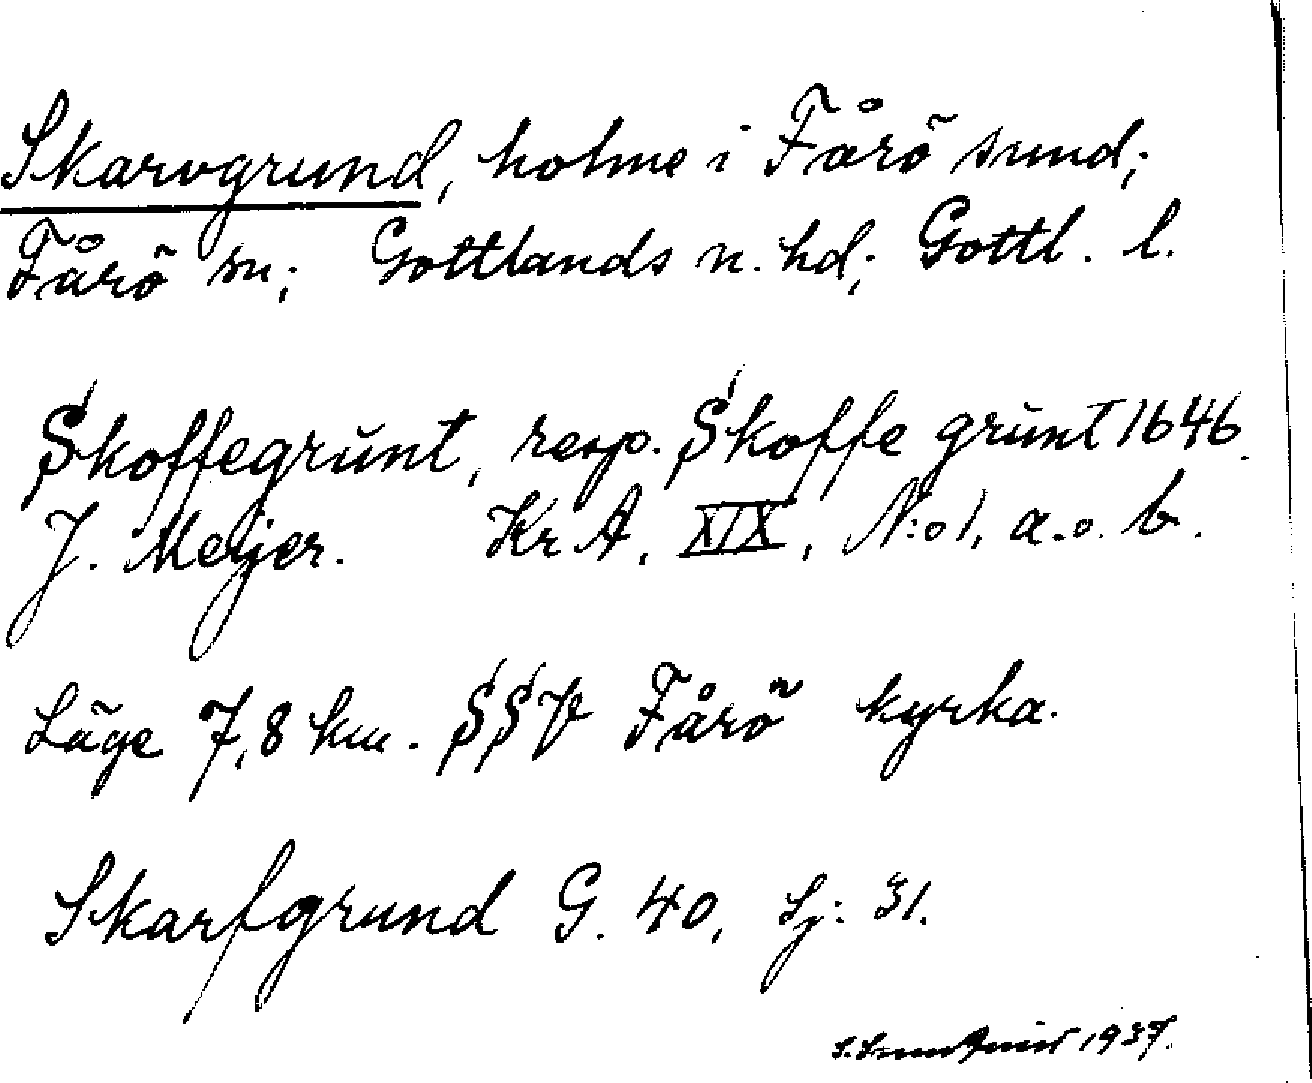 Skarvgrund, holme i Fårö sund;
Fårö sn; Gottlands n. hd; Gottl. l.
Skoffegrŭnt, resp. Skoffe grŭnt 1646.
J. Meijer. Kr A, XIX, N:o 1, a.o. b.
Läge 7,8 km. SSV Fårö kyrka.
Skarfgrund G. 40, Sj: 31.
1937.